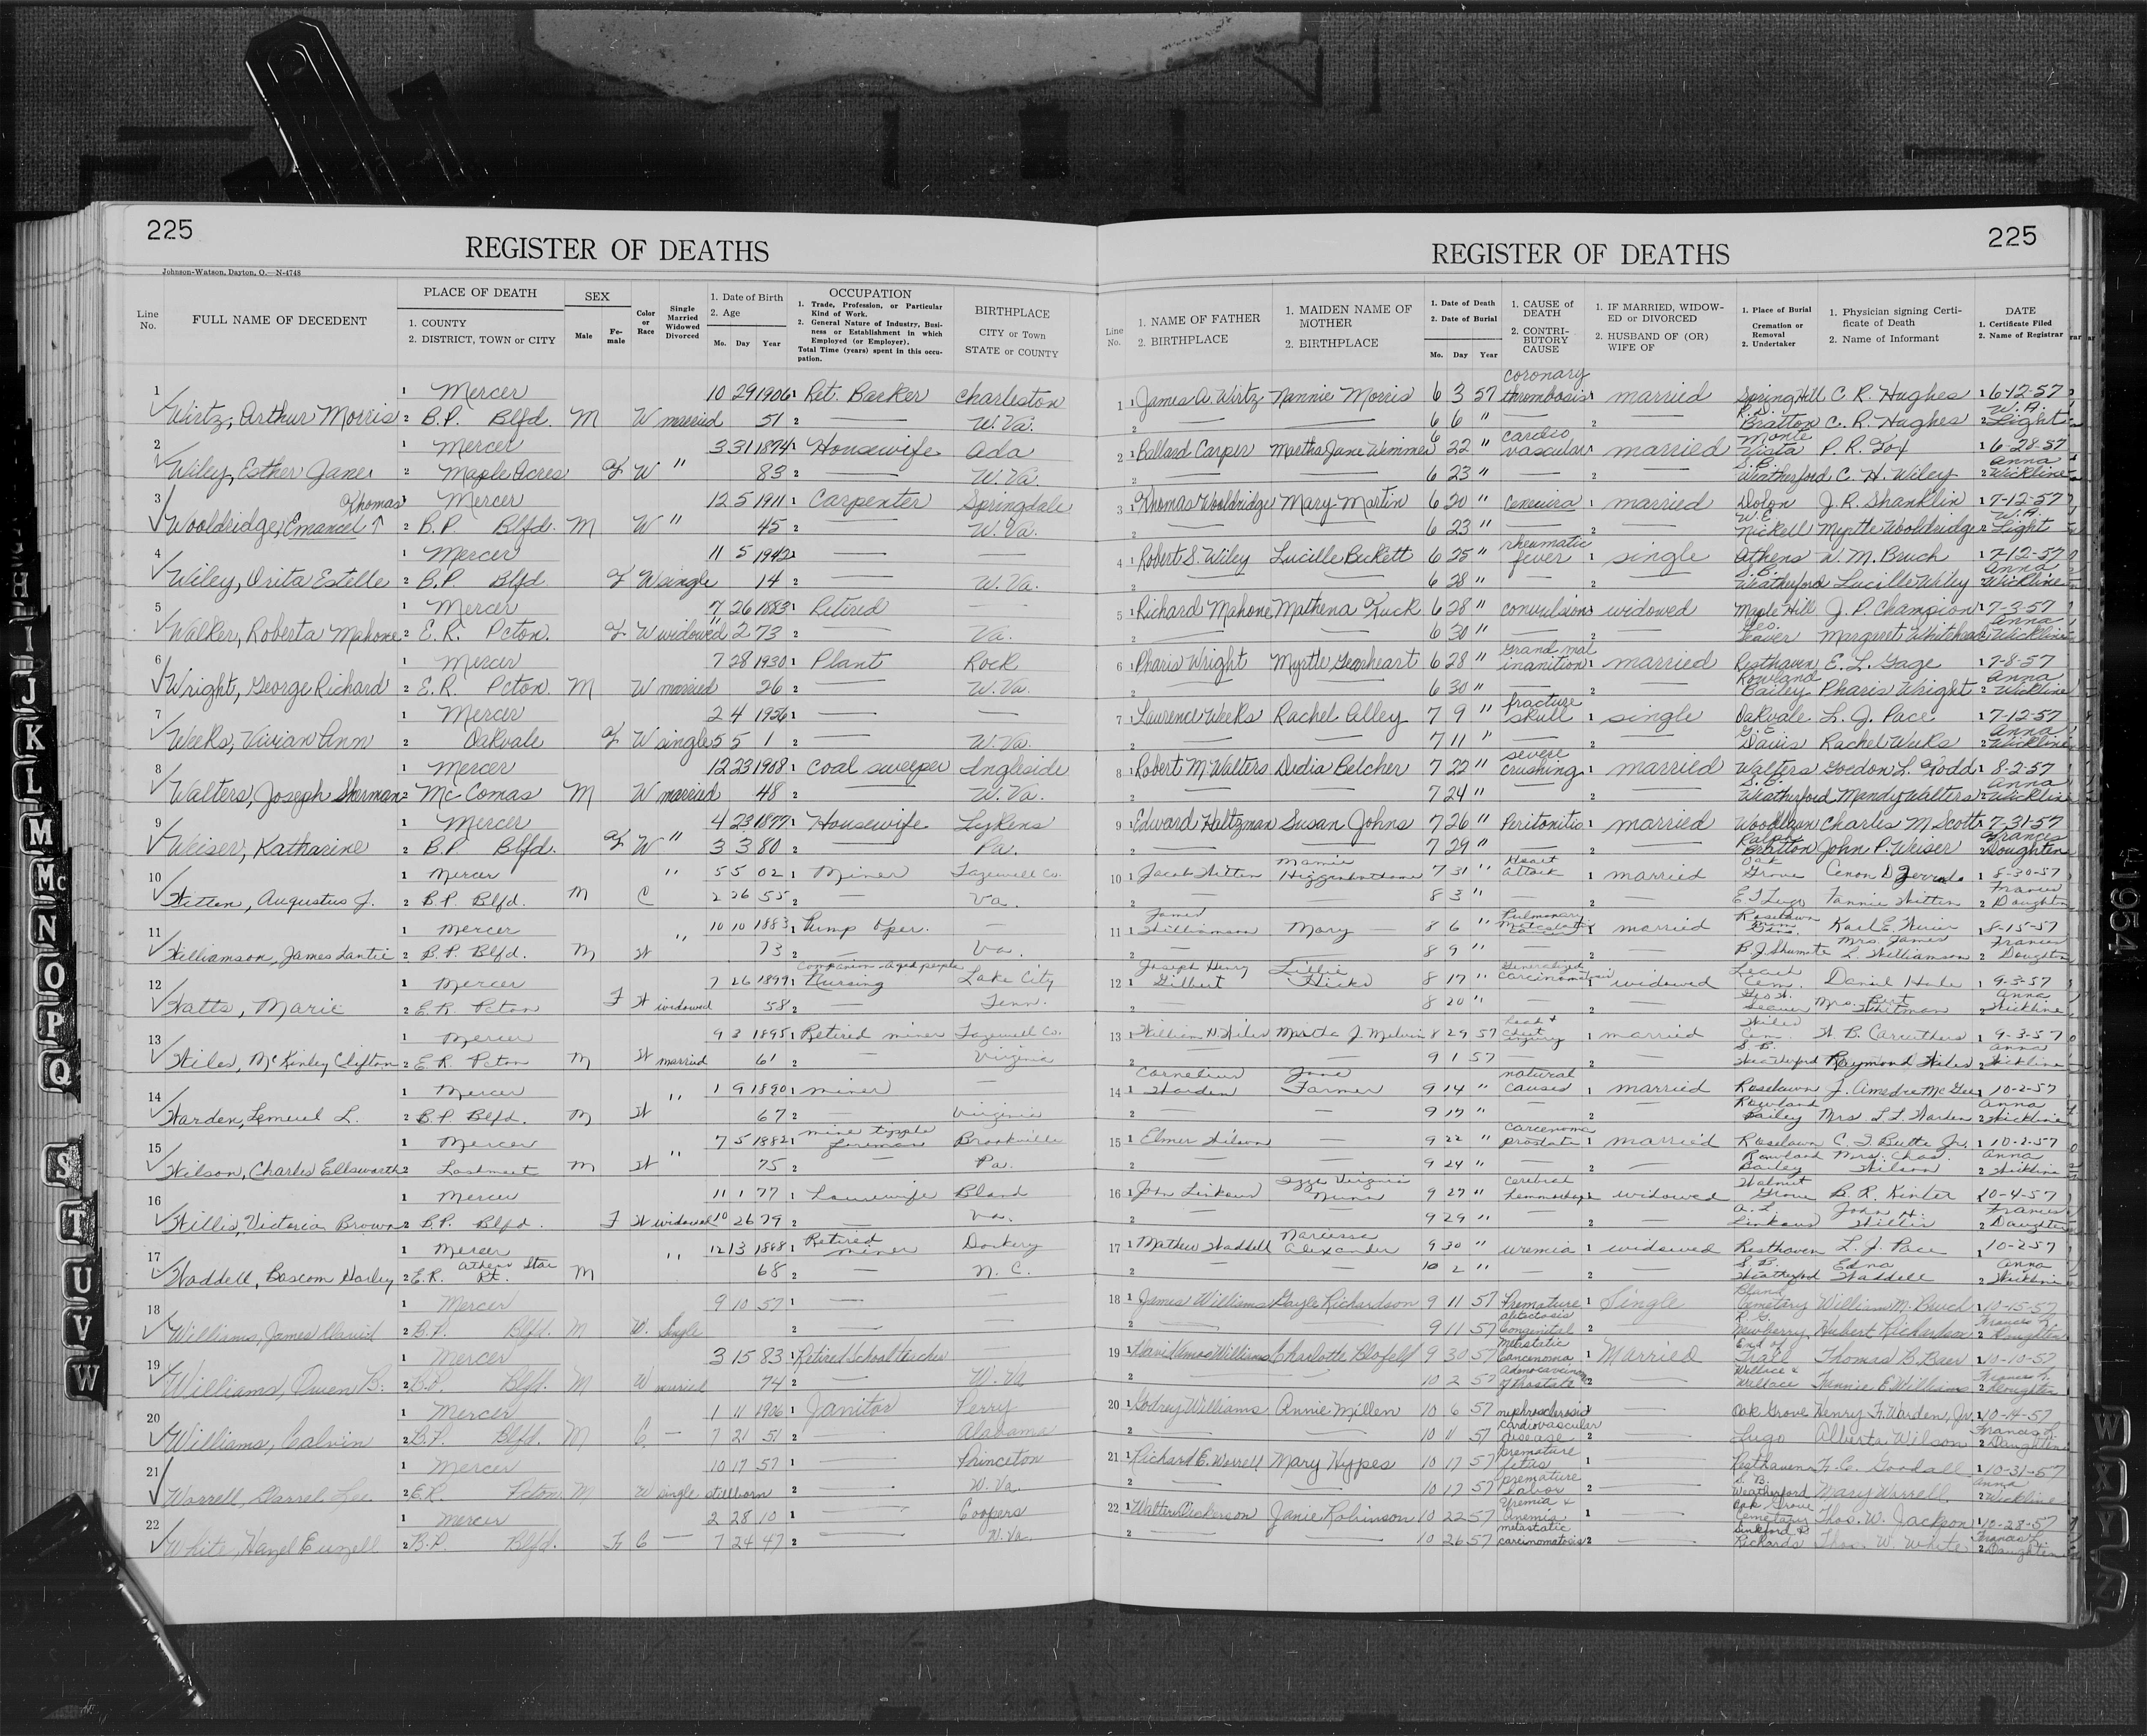 225
REGISTER OF DEATHS
Johnson-Watson, Dayton, O.—N-4748
Line No. FULL NAME OF DECEDENT PLACE OF DEATH 1. COUNTY 2. DISTRICT, TOWN or CITY SEX Male Female Color or Race Single Married Widowed Divorced 1. Date of Birth 2. Age Mo. Day Year OCCUPATION 1. Trade, Profession, or Particular Kind of Work. 2. General Nature of Industry, Business or Establishment in which Employed (or Employer). Total Time (years) spent in this occupation. BIRTHPLACE CITY or Town STATE or COUNTY
1 1 Mercer 10 29 1906 1 Ret. Barker Charleston
Wirtz, Arthur Morris 2 B.P. Blfd. M W married 51 2 — W. Va.
2 1 Mercer 3 31 1874 1 Housewife Ada
Wiley, Esther Jane 2 Maple Acres F W " 83 2 — W. Va.
3 Thomas 1 Mercer 12 5 1911 1 Carpenter Springdale
Wooldridge, Emanuel ↑ 2 B.P. Blfd. M W " 45 2 — W. Va.
4 1 Mercer 11 5 1942 — —
Wiley, Orita Estelle 2 B.P. Blfd. F W single 14 2 — W. Va.
5 1 Mercer 7 26 1883 1 Retired —
Walker, Roberta Mahone 2 E.R. Pcton. F W widowed 2 73 2 — Va.
6 1 Mercer 7 28 1930 1 Plant Rock
Wright, George Richard 2 E.R. Pcton. M W married 26 2 — W. Va.
7 1 Mercer 2 4 1956 1 — —
Weeks, Vivian Ann 2 Oakvale F W single 5 5 1 2 — W. Va.
8 1 Mercer 12 23 1908 1 Coal sweeper Ingleside
Walters, Joseph Sherman 2 McComas M W married 48 2 — W. Va.
9 1 Mercer 4 23 1877 1 Housewife Lykens
Weiser, Katharine 2 B.P. Blfd. F W " 3 3 80 2 — Pa.
10 1 Mercer " 5 5 02 1 Miner Tazewell Co.
Witten, Augustus J. 2 B.P. Blfd. M C 2 26 55 2 — Va.
11 1 Mercer " 10 10 1883 1 Pump Oper. —
Williamson, James Lantie 2 B.P. Blfd. M W 73 2 — Va.
12 1 Mercer 7 26 1899 1 Companion-aged people Nursing Lake City
Watts, Marie 2 E.R. Pcton F W widowed 58 2 — Tenn.
13 1 Mercer 9 3 1895 1 Retired miner Tazewell Co.
Wiles, McKinley Clifton 2 E.R. Pcton M W married 61 2 — Virginia
14 1 Mercer " 1 9 1890 1 miner —
Warden, Lemuel L. 2 B.P. Blfd. M W 67 2 — Virginia
15 1 Mercer " 7 5 1882 1 mine tipple foreman Brookville
Wilson, Charles Ellsworth 2 Lashmeet M W 75 2 — Pa.
16 1 Mercer 11 1 77 1 Housewife Bland
Willis, Victoria Brown 2 B.P. Blfd. F W widowed 10 26 79 2 — Va.
17 1 Mercer " 12 13 1888 1 Retired miner Dockery
Waddell, Bascom Harley 2 E.R. Athens Star Rt. M 68 2 — N.C.
18 1 Mercer 9 10 57 1 — —
Williams, James David 2 B.P. Blfd. M W. Single 2 — —
19 1 Mercer 3 15 83 1 Retired School teacher —
Williams, Owen B. 2 B.P. Blfd. M W married 74 2 — W. Va
20 1 Mercer 1 11 1906 1 Janitor Perry
Williams, Calvin 2 B.P. Blfd. M C — 7 21 51 2 — Alabama
21 1 Mercer 10 17 57 1 — Princeton
Worrell, Darrel Lee 2 E.R. Pcton M W single stillborn 2 — W. Va.
22 1 Mercer 2 28 10 1 — Coopers
White, Hazel 2 B.P. Blfd. F C — 7 24 47 2 — W. Va.
225
REGISTER OF DEATHS
Line No. 1. NAME OF FATHER 2. BIRTHPLACE 1. MAIDEN NAME OF MOTHER 2. BIRTHPLACE 1. Date of Death 2. Date of Burial Mo. Day Year 1. CAUSE of DEATH 2. CONTRIBUTORY CAUSE 1. IF MARRIED, WIDOWED or DIVORCED 2. HUSBAND OF (OR) WIFE OF 1. Place of Burial Cremation or Removal 2. Undertaker 1. Physician signing Certificate of Death 2. Name of Informant DATE 1. Certificate Filed 2. Name of Registrar
1 1 James A. Wirtz Nannie Morris 6 3 57 coronary thrombosis 1 married Spring Hill C. R. Hughes 1 6-12-57
2 — — 6 6 " 2 — R.S. Bratton C. R. Hughes 2 W.A. Light
2 1 Ballard Carper Martha Jane Wimmer 6 22 " cardio vascular 1 married Monte Vista P. R. Fox 1 6-28-57
2 — — 6 23 " — 2 — S.B. Weatherford C. H. Wiley 2 Anna Wickline
3 1 Thomas Wooldridge Mary Martin 6 20 " 1 married J. R. Shanklin 1 7-12-57
2 — — 6 23 " — 2 — W.E. Nickell Myrtle Wooldridge 2 W.A. Light
4 1 Robert S. Wiley Lucille Beckett 6 25 " rheumatic fever 1 single Athens W. M. Bruch 1 7-12-57
2 — — 6 28 " — 2 — S.B. Weatherford Lucille Wiley 2 Anna Wickline
5 1 Richard Mahone Mathena Tuck 6 28 " convulsions widowed Maple Hill J. P. Champion 1 7-3-57
2 — — 6 30 " — 2 — Geo. Seaver Margaret Whitehead 2 Anna Wickline
6 1 Pharis Wright Myrtle Gearheart 6 28 " Grand mal inanition 1 married Resthaven E. L. Gage 1 7-8-57
2 — — 6 30 " — 2 — Rowland Bailey Pharis Wright 2 Anna Wickline
7 1 Laurence Weeks Rachel Alley 7 9 " fracture skull 1 single Oakvale L. J. Pace 1 7-12-57
2 — — 7 11 " — 2 — G.E. Davis Rachel Weeks 2 Anna Wickline
8 1 Robert M. Walters Dedia Belcher 7 22 " severe crushing 1 married Walters Gordon L. Todd 1 8-2-57
2 — — 7 24 " 2 — S.B. Weatherford Mandy Walters 2 Anna Wickline
9 1 Edward Holtzman Susan Johns 7 26 " Peritonitis 1 married Woodlawn Charles M. Scott 1 7-31-57
2 — — 7 29 " — 2 — Ralph Bratton John P. Weiser 2 Frances Doughten
10 1 Jacob Witten Mamie Higginbotham 7 31 " Heart attack 1 married Oak Grove 1 8-30-57
2 — — 8 3 " — 2 — E T Lugo Fannie Witten 2 Frances Doughton
11 1 James Williamson Mary — 8 6 " Pulmonary 1 married Roselawn Karl E. Weier 1 8-15-57
2 — 8 9 " — — B. J. Shumate Mrs. James L. Williamson 2 Frances Doughton
12 1 Joseph Henry Gilbert Lillie Hicks 8 17 " Generalized carcinomatosis 1 widowed Cem. Daniel Hale 1 9-3-57
2 — — 8 20 " — 2 — Geo W. Seaver Mrs. Bert Whitman 2 Anna Wickline
13 1 William D Wiles Martta J. Melvin 8 29 57 Head & chest injury 1 married Wiles Cem. W. B. Caruthers 1 9-3-57
2 — — 9 1 57 — — S.B. Weatherford Raymond Wiles 2 Anna Wickline
14 1 Cornelius Warden Jane Farmer 9 14 " natural causes 1 married Roselawn J. Amedee McGee 1 10-2-57
2 — — 9 17 " 2 — Rowland Bailey Mrs. L. L. Warden 2 Anna Wickline
15 1 Elmer Wilson — 9 22 " carcenoma prostate 1 married Roselawn C. T. Butte Jr. 1 10-2-57
2 — — 9 24 " — 2 — Rowland Bailey Mrs. Chas. Wilson 2 Anna Wickline
16 1 John Linkous Ozze Virginia Nunn 9 27 " cerebral hemmorhage 1 widowed Walnut Grove B. R. Kinter 1 10-4-57
2 — — 9 29 " — 2 — A. L. Linkous John H. Willis 2 Frances Daughten
17 1 Mathew Waddell Narcissa Alexander 9 30 " uremia 1 widowed Resthaven L. J. Pace 1 10-2-57
2 — — 10 2 " — 2 — S.B. Weatherford Edna Waddell 2 Anna Wickline
18 1 James Williams Gayle Richardson 9 11 57 Premature 1 Single Bland Cemetary William M. Bruch 1 10-15-57
2 — — 9 11 57 atilictosis Congenital 2 — R.G. Newberry Hubert Richardson 2 Frances L. Doughten
19 1 David Amos Williams Charlotte Blofeld 9 30 57 Matastatic Carcenoma 1 Married End of Trail Thomas B. Baer 1 10-10-57
2 — — 10 2 57 Adenocarcinoma of Prostate 2 — Wallace & Wallace Fannie E Williams 2 Frances L. Doughten
20 1 Godrey Williams Annie Millen 10 6 57 nephrosclerosis 1 — Oak Grove Henry F. Warden, Jr. 1 10-14-57
2 — — 10 11 57 cardiovascular disease 2 — Lugo Alberta Wilson 2 Frances L. Daughten
21 1 Richard E. Worrell Mary Hypes 10 17 57 premature fetus 1 — Resthaven F. C. Goodall 1 10-31-57
2 — — 10 17 57 premature labor 2 — S.B. Weatherford Mary Worrell 2 Anna Wickline
22 1 Walter Dickerson Janie Robinson 10 22 57 Uremia & Anemia 1 — Oak Grove Cemetary Thos. W. Jackson 1 10-28-57
2 — — 10 26 57 metastatic carcinomatosis 2 — Sinkford & Richards Thos. W. White 2 Frances L. Daughten
H
I
J
K
L
M
Mc
N
O
P
Q
S
T
U
V
W
1954
W
X
Y
Z